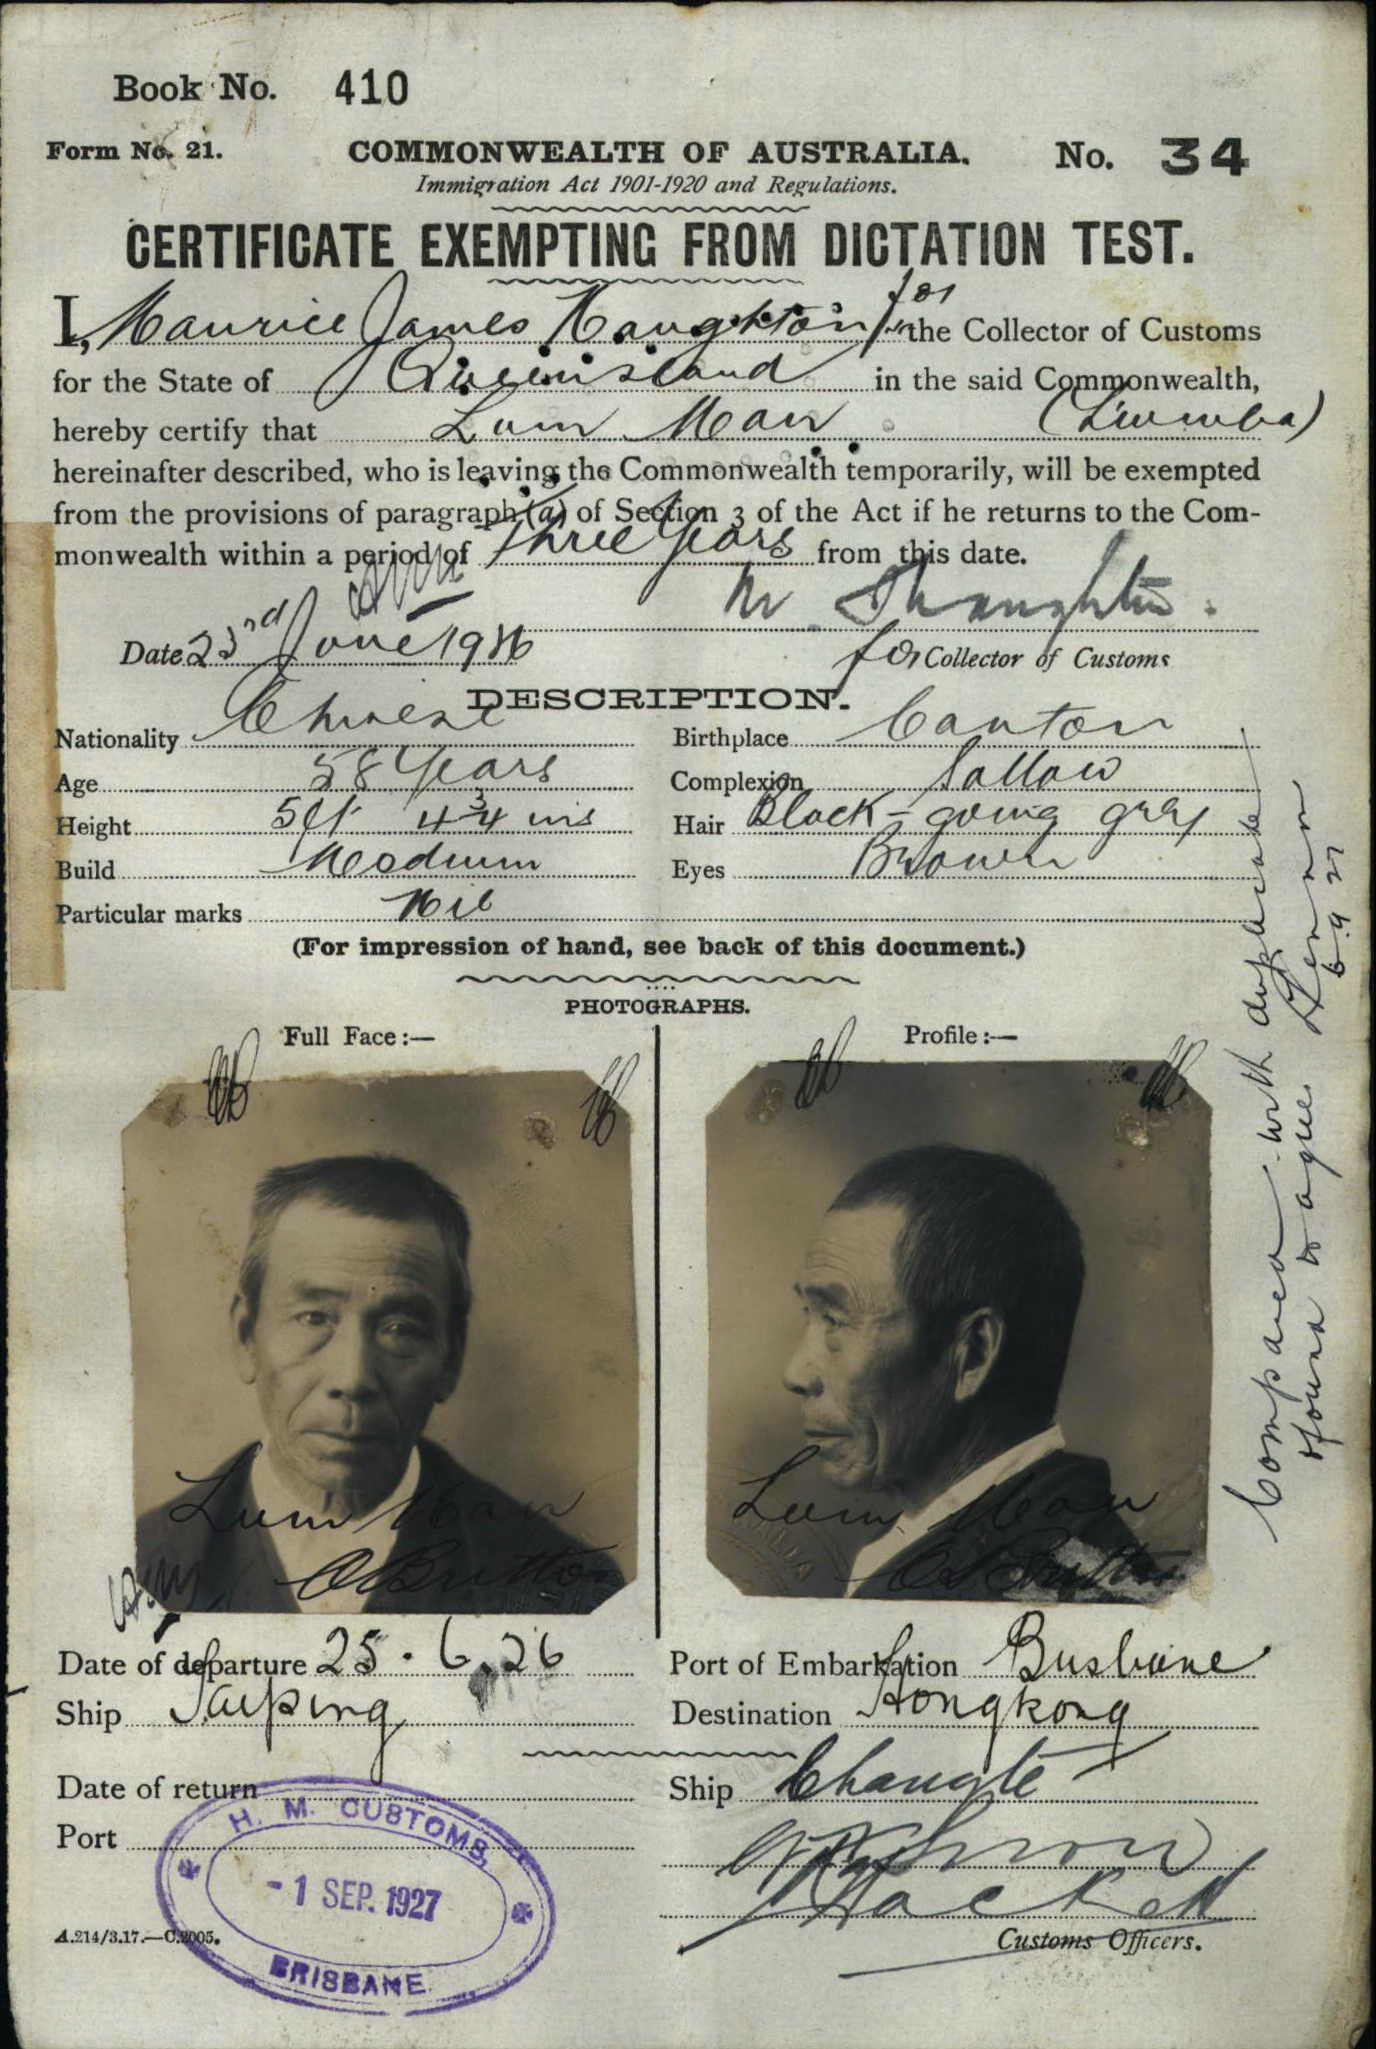 Book No. 410
Form No. 21. COMMONWEALTH OF AUSTRALIA. No. 34
Immigration Act 1901-1920 and Regulations.
CERTIFICATE EXEMPTING FROM DICTATION TEST.
I, Maurice James Haughton for the Collector of Customs
for the State of Queensland in the said Commonwealth,
hereby certify that Lum Man
hereinafter described, who is leaving the Commonwealth temporarily, will be exempted
from the provisions of paragraph (a) of Section 3 of the Act if he returns to the Com-
monwealth within a period of Three Years from this date.
Date 23rd June 1926 for Collector of Customs
DESCRIPTION.
Nationality Chinese Birthplace Canton
Age 58 Years Complexion Sallow
Height 5ft 4 3/4 ins Hair Black - going grey
Build Medium Eyes Brown
Particular marks Nil
(For impression of hand, see back of this document.)
PHOTOGRAPHS.
Full Face:— Profile:—
Lum Man Lum Man
Compared with duplicate
& found to agree
6.9.27
Date of departure 25.6.26 Port of Embarkation Brisbane
Ship Taiping Destination Hongkong
Date of return Ship Changte
Port
H. M. CUSTOMS,
-1 SEP. 1927
BRISBANE
A.214/3.17.—C.2005. Customs Officers.